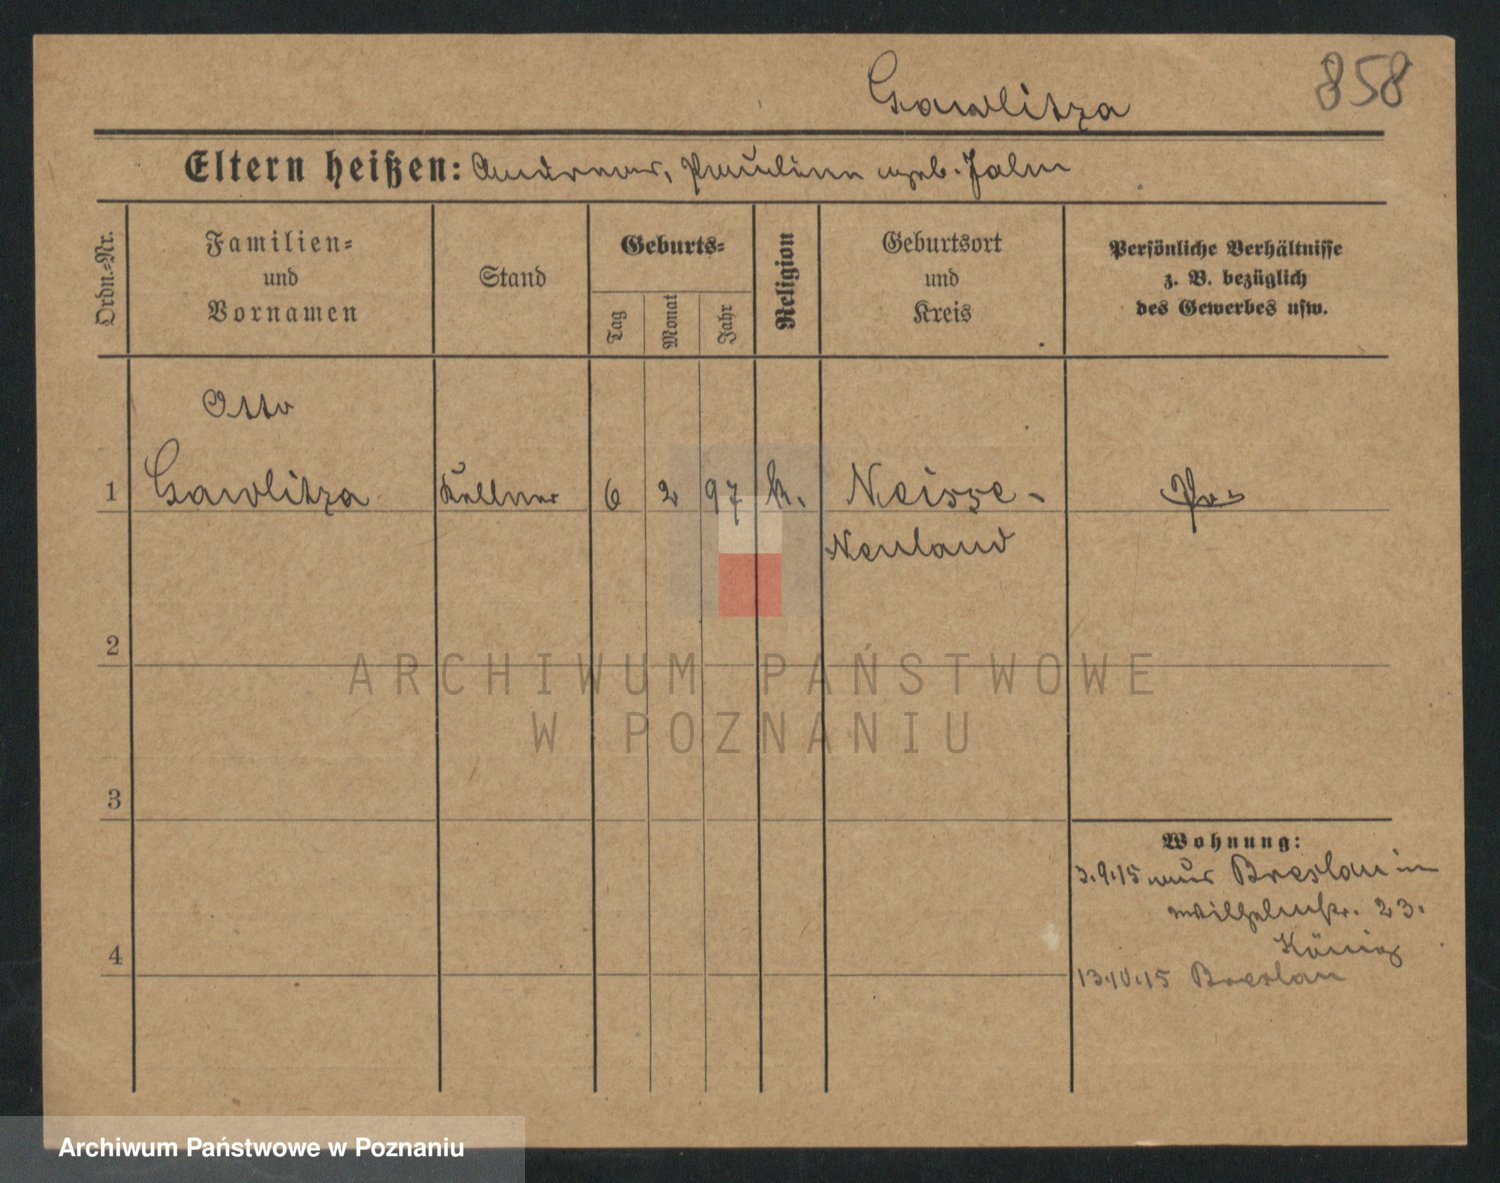 858
Gawlitza
Eltern heißen: Andreas, Pauline geb. Jahn
Ordn.-Nr.
Familien- und Vornamen
Stand
Geburts-
Tag
Monat
Jahr
Religion
Geburtsort und Kreis
Persönliche Verhältnisse
z. B. bezüglich
des Gewerbes usw.
Otto
1 Gawlitza Kellner 6 2 97 k. Neisse- Pr.
Neuland
2
3
4
Wohnung:
3.9.15 aus Breslau in
Wilhelmstr. 23.
König
13.10.15 Breslau
ARCHIWUM PAŃSTWOWE
W POZNANIU
Archiwum Państwowe w Poznaniu